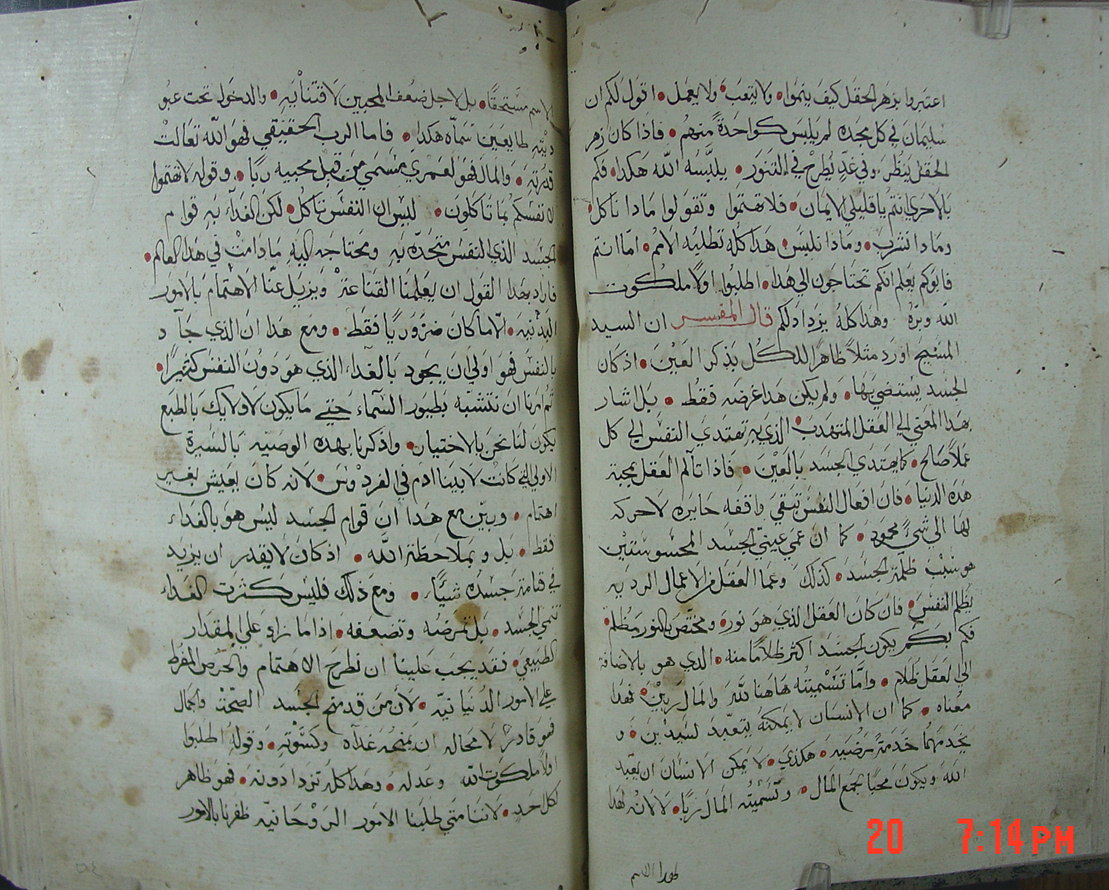 اعتبروا بزهر الحقل كيف ينموا • ولا يتعب • ولا يعمل • اقول لكم ان
سليمان في كل مجده لم يلبس كواحدة منهم • فاذا كان زهر
الحقل ينظر • وفي غد يطرح في التنور • يلبسه الله هكذا • فكم
بالاحري انتم يا قليلي الايمان • فلا تهتموا وتقولوا ماذا ناكل •
وماذا نشرب • وماذا نلبس • هذا كله تطلبه الامم • اما انتم
فابوكم يعلم انكم تحتاجون الي هذا • اطلبوا اولا ملكوت
الله وبره • وهذا كله يزداد لكم قال المفسر ان السيد
المسيح اورد مثلا ظاهرا للكل بذكر العين • اذ كان
الجسد يستضي بها • ولم يكن هذا غرضه فقط • بل اشار
بهذا المعني الي العقل المتهدب الذي به تهتدي النفس الي كل
عملا صالح • كما يهتدي الجسد بالعين • فاذا تالم العقل بمحبة
هذه الدنيا • فان افعال النفس تبقي واقفه حايره لا حركه
لها الي شي محمود • كما ان عمي عيني الجسد المحسوستين
هو سبب ظلمة الجسد • كذلك وعما العقل من الاعمال الرديه
يظلم النفس • فان كان العقل الذي هو نور • ومختص بالنور مظلم •
فكم بكم يكون الجسد اكثر ظلاما منه • الذي هو بالاضافة
الي العقل ظلام • واما تسميته هاهنا لله والمال ربين • فهذا
معناه • كما ان الانسان لا يمكنه يتعبد لسيدين • و
يخدمهما خدمة مرضيه • هكذي • لا يمكن الانسان ان يعبد
الله ويكون محبا لجمع المال • وتسميته المال ربا • لا لانه لهذا
لهذا الاسم
الاسم مستحقا • بل لاجل ضعف المحبين لاقتنايه • والدخول تحت عبو
ديته طايعين سماه هكذا • فاما الرب الحقيقي فهو الله تعالت
قدرته • والمال فهو لعمري مسمي من قبل محبيه ربا • وقوله لا تهتموا
لانفسكم بما تاكلون • ليس ان النفس تاكل • لكن الغداء به قوام
الجسد الذي النفس متحده به ومحتاجه اليه ما دامت في هذا العالم •
فاراد بهذا القول ان يعلمنا القناعة • ويزيل عنا الاهتمام بالامور
البدنيه • الا ما كان ضروريا فقط • ومع هذا ان الذي جاد
بالنفس فهو اولي ان يجود بالغداء الذي هو دون النفس كثيرا •
ثم امرنا ان نتشبه بطيور السماء حتي ما يكون لاولايك بالطبع
يكون لنا نحن بالاختيار • واذكرنا بهذه الوصيه بالسيرة
الاولي التي كانت لابينا ادم في الفردوس • لانه كان يعيش بغير
اهتمام • وبين مع هذا ان قوام الجسد ليس هو بالغداء
فقط • بل وبملاحظة الله • اذ كان لا يقدر ان يزيد
في قامة جسده شيا • ومع ذلك فليس كثرت الغداء
تنمي الجسد • بل تمرضه وتضعفه • اذا ما زاد علي المقدار
الطبيعي • فقد يجب علينا ان نطرح الاهتمام والحرص المفرط
علي الامور الدنيانيه • لان من قد منح الجسد الصحة والجمال
فهو قادر لا محاله ان يمنحه غداه وكسوته • وقوله اطلبوا
اولا ملكوت الله وعدله • وهذا كله تزدادونه • فهو ظاهر
لكل احد • لاننا متي طلبنا الامور الروحانيه ظفرنا بالامور
20 7:14 PM